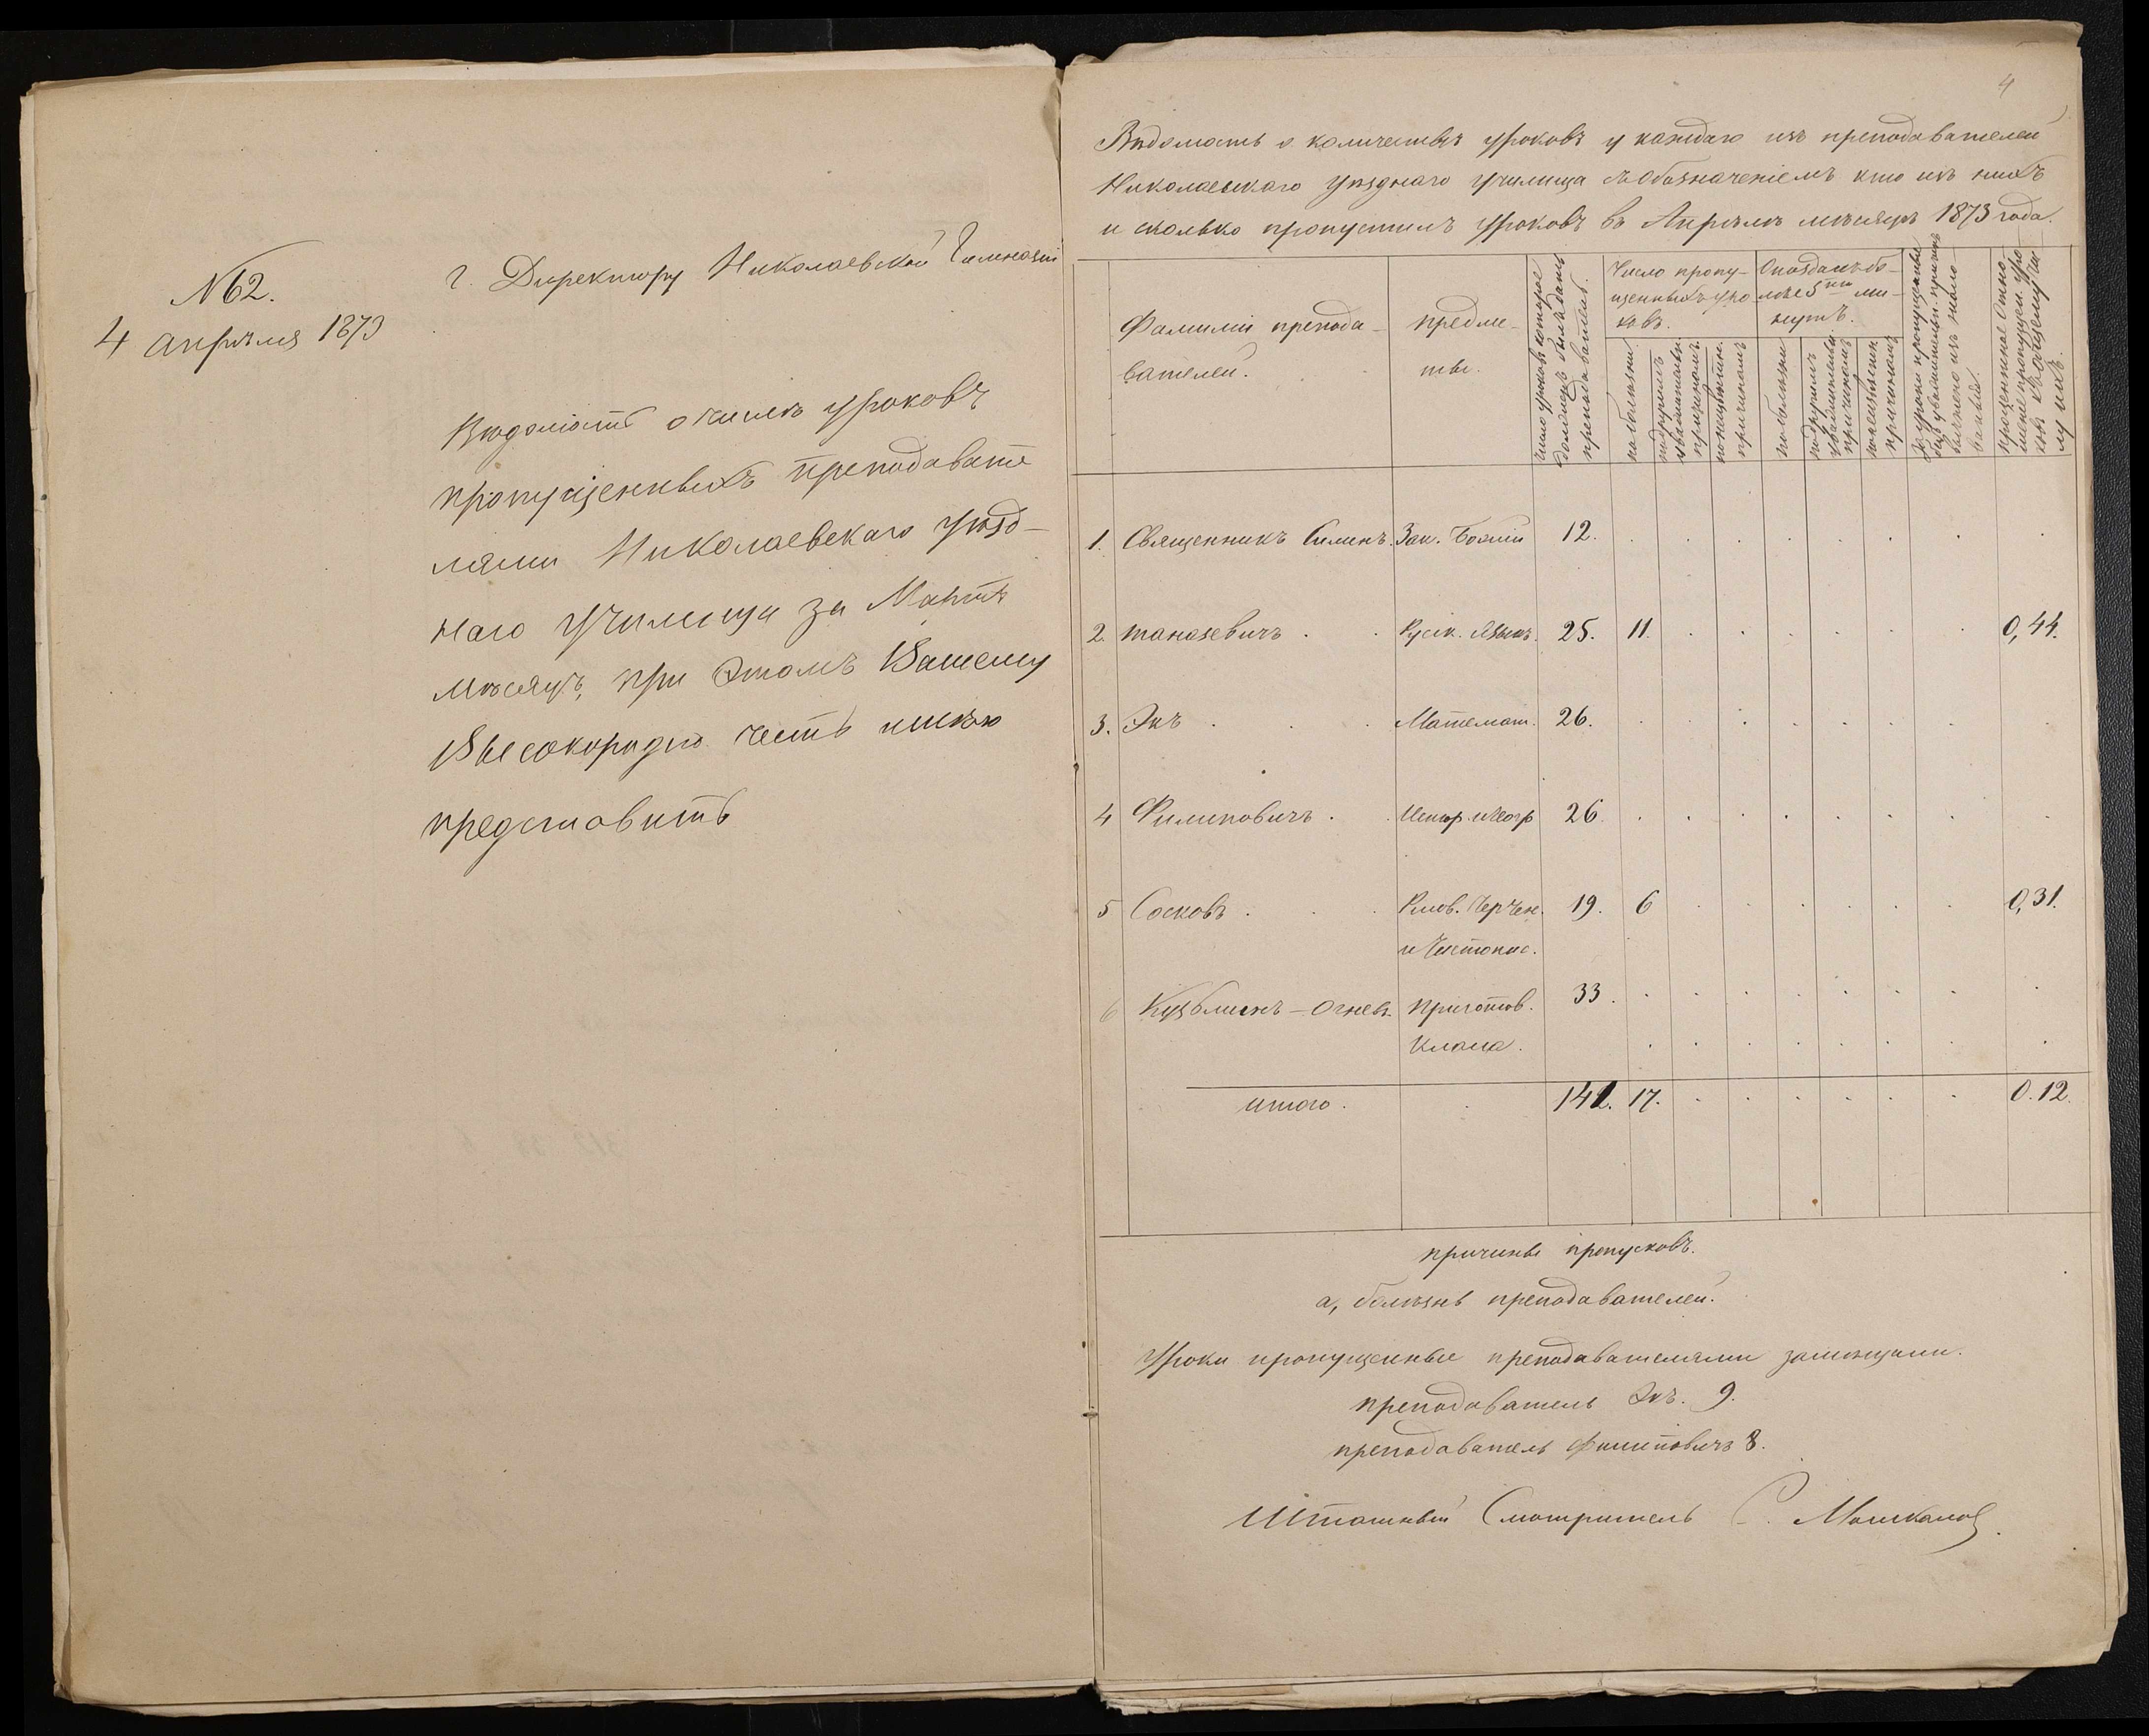 № 62.
4 апрѣля 1873
Г. Директору Николаевской Гимназіи
Вѣдомость о числѣ уроковъ
пропущенныхъ преподавате
лями Николаевскаго Уѣзд-
наго Училища за Мартъ
мѣсяцъ, при этомъ Вашему
Высокородію честь имѣю
представить
4
Вѣдомость о количествѣ уроковъ у каждаго изъ преподавателей
Николаевскаго Уѣзднаго Училища съ обозначеніемъ кто изъ нихъ
и сколько пропустилъ уроковъ въ Апрѣлѣ мѣсяцѣ 1873 года.
Фамиліи препода-
вателей.
Предме-
ты.
Число уроковъ которое
долженъ былъ дать
преподаватель.
Число пропу-
щенныхъ уро
ковъ.
по болѣзни
по другимъ
уважительн.
причинамъ.
по неизвѣстн.
причинамъ
Опоздалъ бо-
лѣе 5ти ми-
нутъ.
по болѣзни
по другимъ
уважительн.
причинамъ
по неизвѣстн
причинамъ
За уроки пропущенные
без уважительн. причинъ
вычтено изъ жало-
ванья.
Процентное отно-
шеніе пропущен. уро
ковъ къ общему чи
слу ихъ.
1. Священникъ Силинъ. Зак. Божій 12.
2 Таназевичъ . . Русск. Языкъ. 25. 11. 0,44.
3. Экъ . . . Математ. 26.
4 Филиповичъ . . Истор. и Геогр 26.
5 Сосковъ . . . Рисов. Черчен. 19. 6 0,31.
и Чистопис.
6 Кузьминъ-Огневъ. Приготов. 33.
Класса.
Итого. 141. 17. 0.12.
Причины пропусковъ.
а, болѣзнь преподавателей.
Уроки пропущенные преподавателями замѣщали.
преподаватель Экъ. 9.
преподаватель Филиповичъ 8.
Штатный Смотритель С. Машкалов